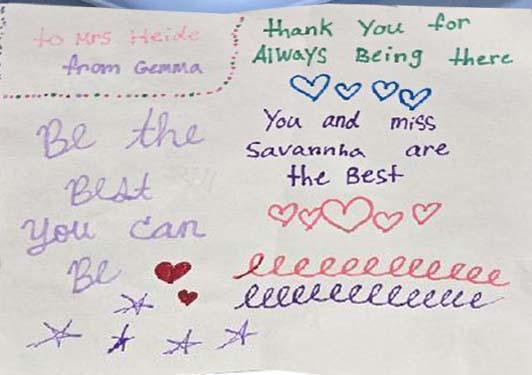 to Mrs Heide
from Gemma
Be the
Best
You can
Be
thank You for
Always Being there
You and miss
Savannha are
the Best